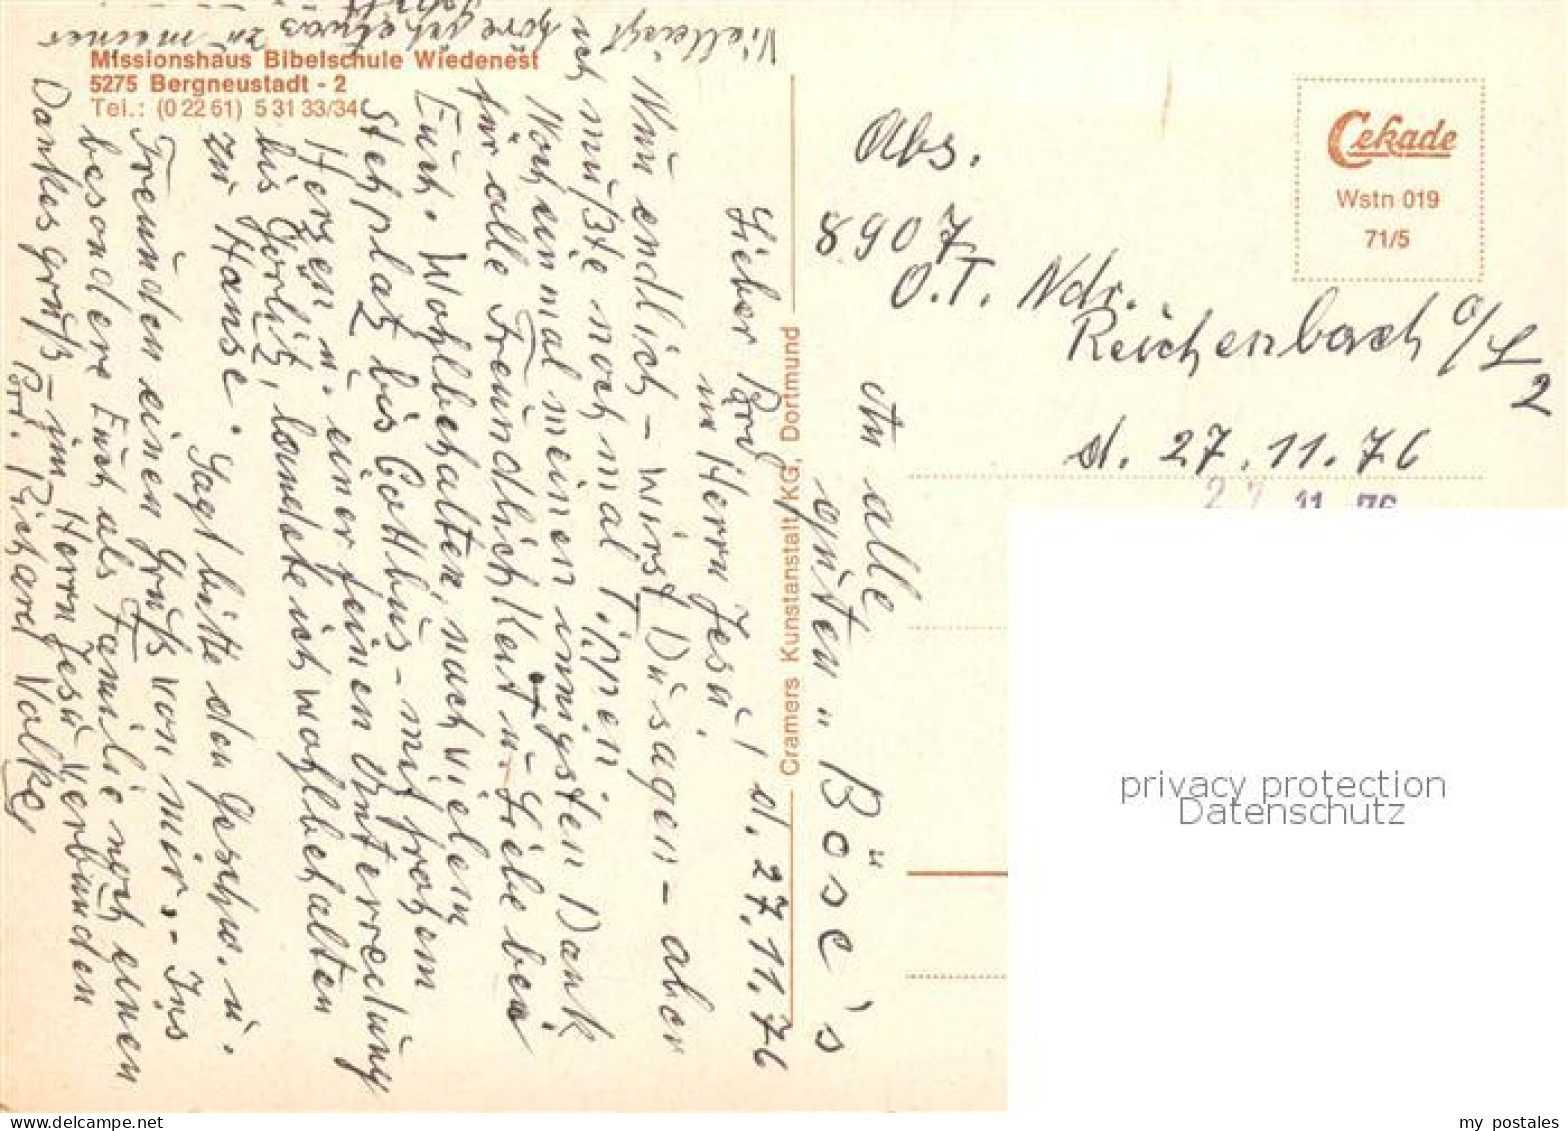 Missionshaus Bibelschule Wiedenest
5275 Bergneustadt - 2
Tel.: (0 22 61) 5 31 33/34
Cramers Kunstanstalt KG, Dortmund
Cekade
Wstn 019
71/5
Abs.
8907
O.T. Ndr.
Reichenbach O/L
2
d. 27.11.76
27 11 76
An alle
guten „ Böse's
d. 27.11.76
Lieber Brd
im Herrn Jesu!
Nun endlich – wirst Du sagen – aber
ich mußte noch mal tippen
Noch einmal meinen innigsten Dank
für alle Freundlichkeit u. Liebe bei
Euch. Wohlbehalten, nach vielem
Stehplatz bis Cottbus – mit frohem
Herzen u. einer feinen Unterredung
bis Görlitz, landete ich wohlbehalten
zu Hause. Sagt bitte den Geschw. u.
Freunden einen Gruß von mir. – Ins
besondere Euch als Familie noch einen
Dankesgruß – im Herrn Jesu verbunden
Richard Volke
Vielleicht höre ich etwas zu meiner
privacy protection
Datenschutz
www.delcampe.net
my_postales